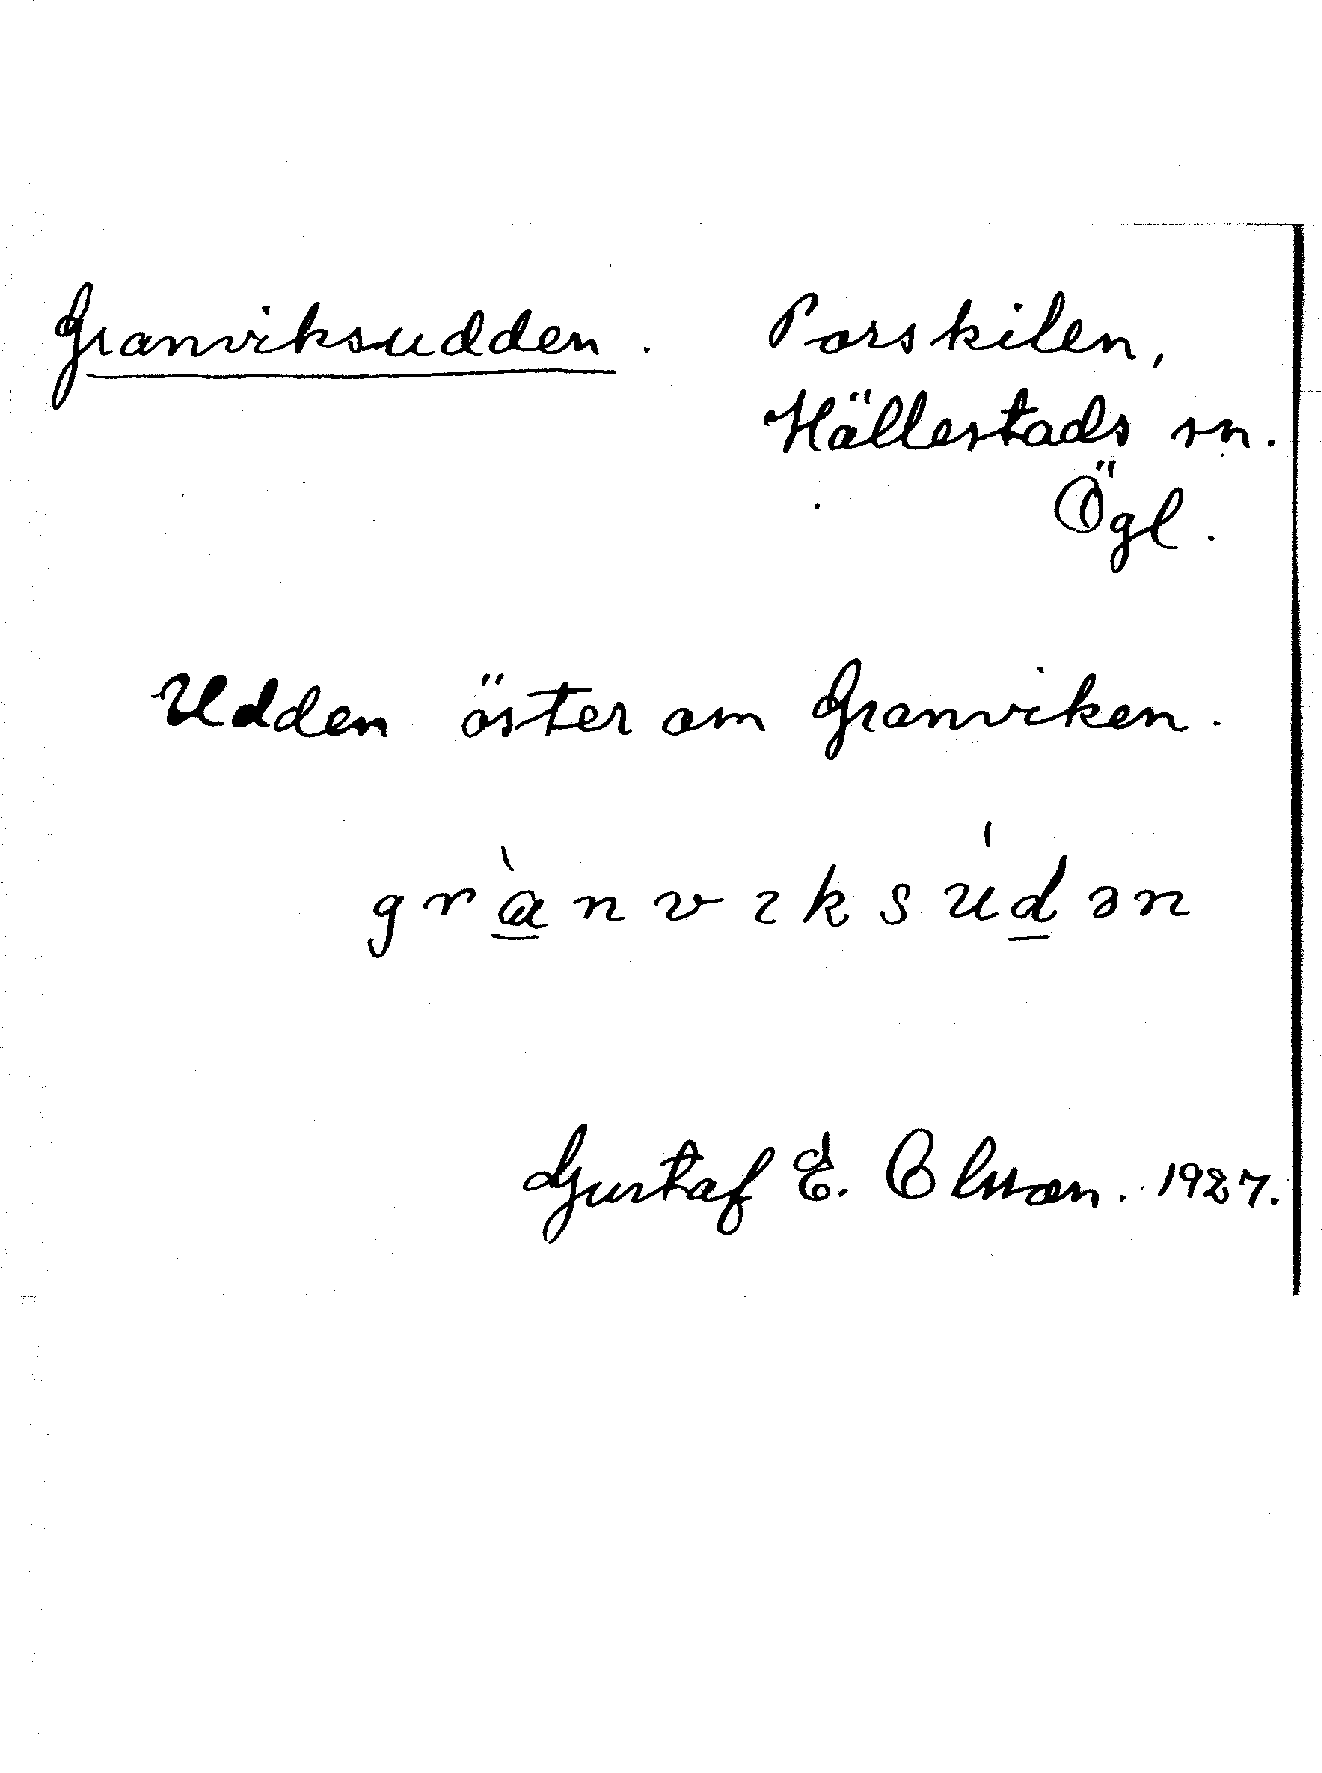 Granviksudden. Porskilen,
Hällestads sn.
Ögl.
Udden öster om Granviken.
grànvıksúdən
Gustaf E. Olsson. 1927.